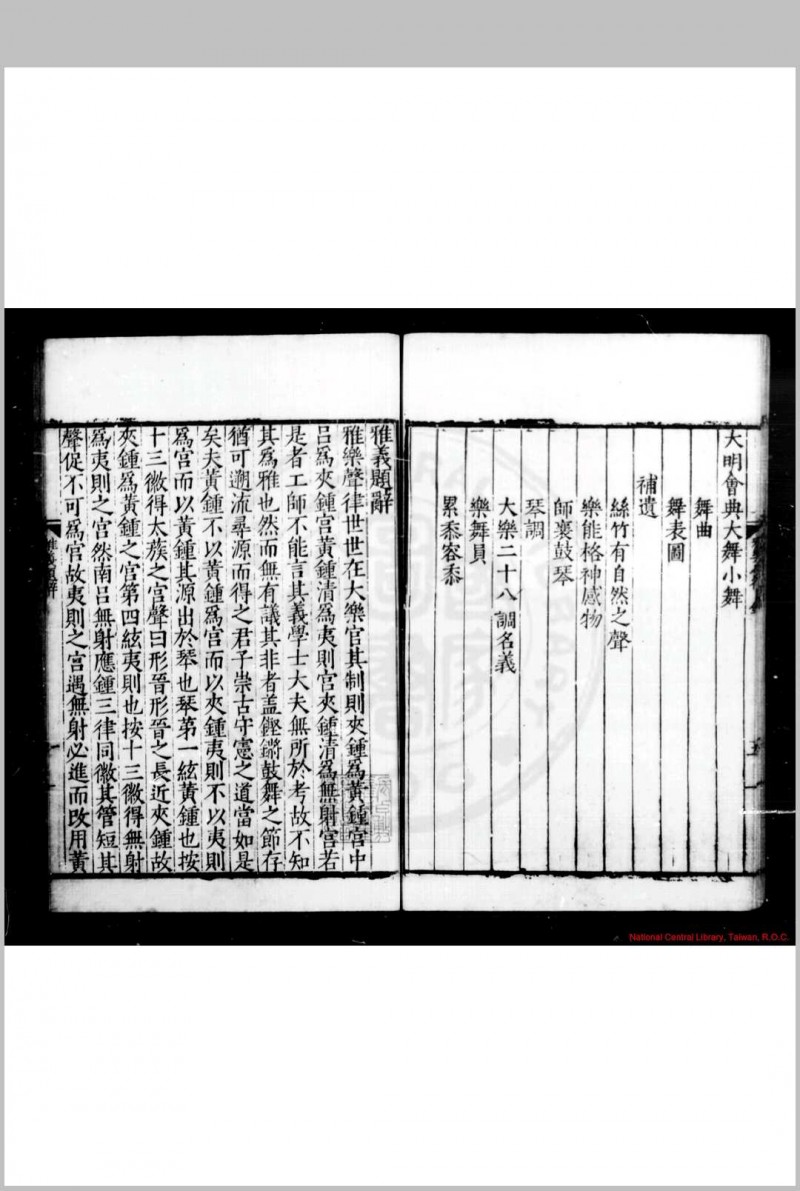 大明會典大舞小舞
舞曲
舞表圖
補遺
絲竹有自然之聲
樂能格神感物
師襄鼓琴
琴調
大樂二十八調名義
樂舞員
累黍容黍
雅義題辭
雅樂聲律世世在大樂官其制則夾鍾爲黃鍾宮中
呂爲夾鍾宮黃鍾清爲夷則宮夾鍾清爲無射宮若
是者工師不能言其義學士大夫無所於考故不知
其爲雅也然而無有議其非者蓋鏗鏘鼓舞之節存
猶可遡流尋源而得之君子崇古守憲之道當如是
矣夫黃鍾不以黃鍾爲宮而以夾鍾夷則不以夷則
爲宮而以黃鍾其源出於琴也琴第一絃黃鍾也按
十三徽得太族之宮聲曰形晉形晉之長近夾鍾故
夾鍾爲黃鍾之宮第四絃夷則也按十三徽得無射
爲夷則之宮然南呂無射應鍾三律同徽其管短其
聲促不可爲宮故夷則之宮遇無射必進而改用黃
National Central Library, Taiwan, R.O.C.